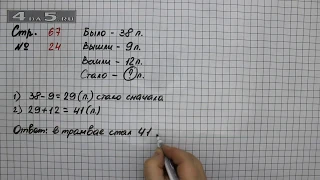 4 на 5.ru
Стр. 67
№ 24
Было - 38 п.
Вышли - 9 п.
Вошли - 12 п.
Стало - ? п.
1) 38 - 9 = 29 (п.) стало сначала
2) 29 + 12 = 41 (п.)
Ответ: в трамвае стал 41